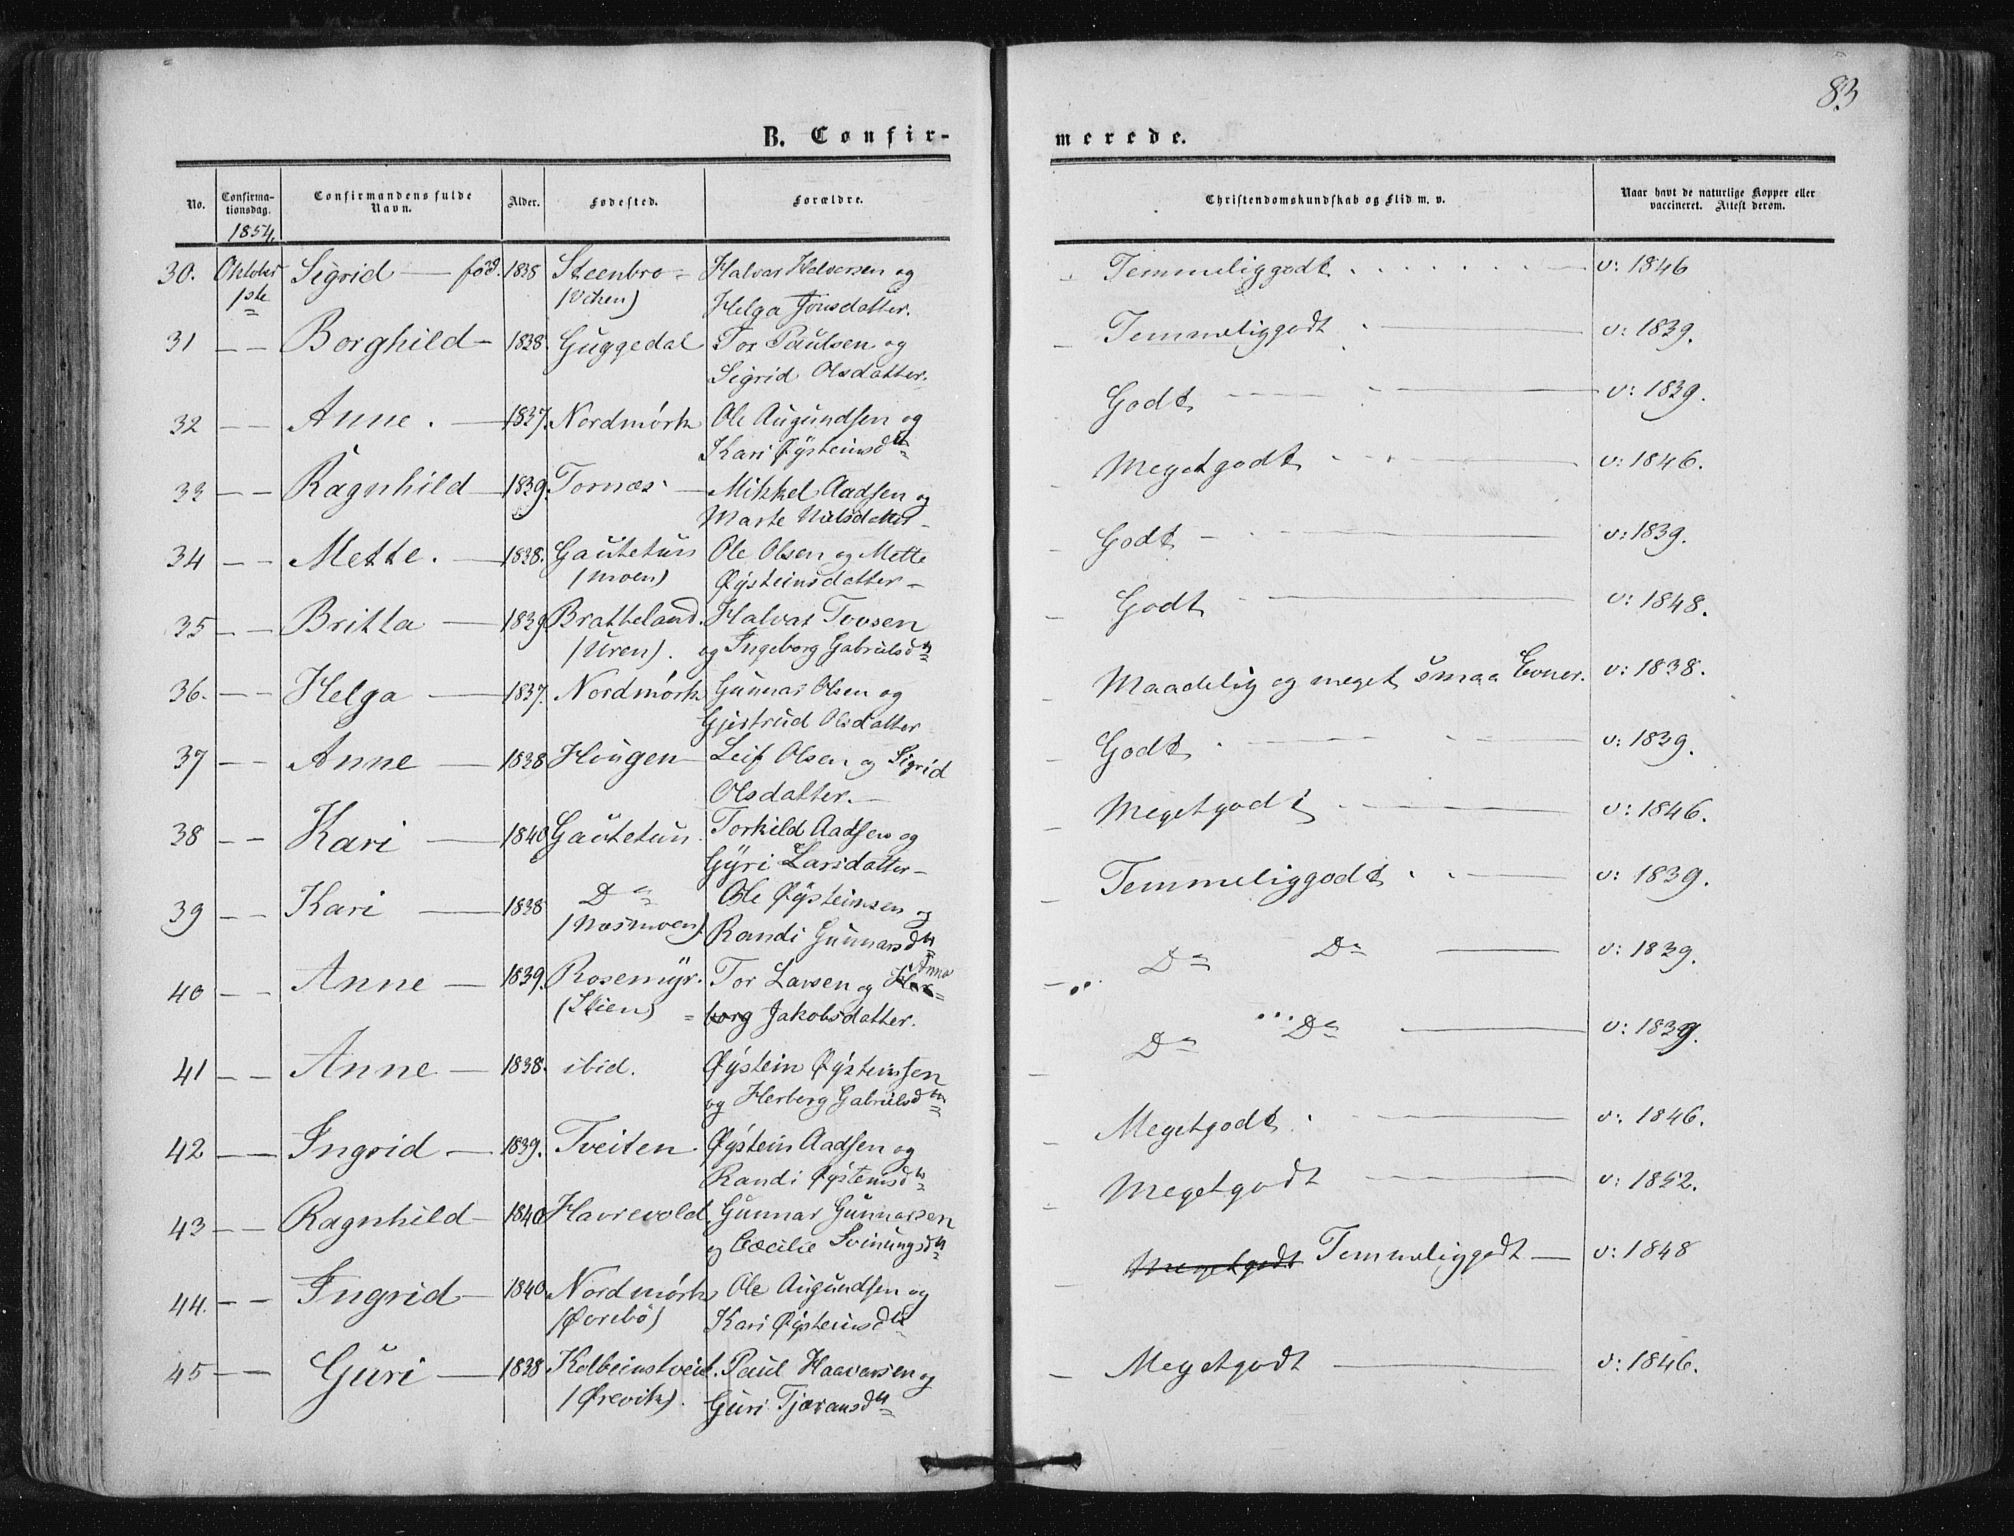 83
B. Confir-
merede.
No.
Confirma-
tionsdag.
Confirmandens fulde
Navn.
Alder.
Fødested.
Forældre.
Christendomskundskab og Flid m. v.
Naar havt de naturlige Kopper eller
vaccineret. Attest derom.
1854.
30. Oktober Sigrid — fød. 1838 Steenbro= Halvar Halvorsen og Temmeliggodt v: 1846
1ste (Voken) Helga Jonsdatter.
31 — — Borghild — 1838 Guggedal Tor Paulsen og Temmeliggodt — v: 1839.
Sigrid Olsdatter.
32 — — Anne. — 1837. Nordmørk Ole Augundsen og Godt — v: 1839.
Kari Øÿsteinsdtr
33 — — Ragnhild — 1839. Tornæs — Mikkel Aadsen og Megetgodt — v: 1846.
Marte Nielsdatter —
34 — — Mette. — 1838. Gautetun Ole Olsen og Mette Godt — v: 1839.
(Moen) Øÿsteinsdatter —
35 — — Britta — 1839 Bratteland. Halvar Tovsen Godt — v: 1848.
(Uren). og Ingeborg Gabrielsdtr
36. — — Helga — 1837. Nordmørk Gunnar Olsen og Maadelig og meget smaa Evner. v: 1838.
Gjertrud Olsdatter
37 — — Anne — 1838 Hougen — Leif Olsen og Sigrid Godt — v: 1839.
Olsdatter. —
38 — — Kari — 1840 Gautetun. Torkild Aadsen og Megetgodt — v: 1846.
Gÿri Larsdatter —
39 — — Kari — 1838 Do Ole Øÿsteinsen og Temmeliggodt — v: 1839.
(Næsmoen) Randi Gunnarsdtr
40 — — Anne — 1839. Rosemÿr. Tor Larsen og Her= Anna Do Do — v: 1839.
(Stien) = borg Jakobsdatter.
41 — — Anne — 1838. ibid. Øÿstein Øÿsteinsen Do Do — v: 1839.
og Herborg Gabrielsdtr
42 — — Ingrid — 1839. Tveiten. Øÿstein Aadsen og Megetgodt — v: 1846.
Randi Øÿsteinsdtr
43 — — Ragnhild — 1840 Havrevold. Gunnar Gunnarsen Megetgodt — v: 1852.
og Cæcilie Svinungsdtr
44. — — Ingrid — 1840. Nordmørk Ole Augundsen og Megetgodt Temmeliggodt — v: 1848
(Øvrebø) Kari Øÿsteinsdtr
45 — — Guri — 1838 Kolbeinstveit. Paul Haavarsen og Megetgodt — v: 1846.
(Ørevik). Guri Tjøransdtr